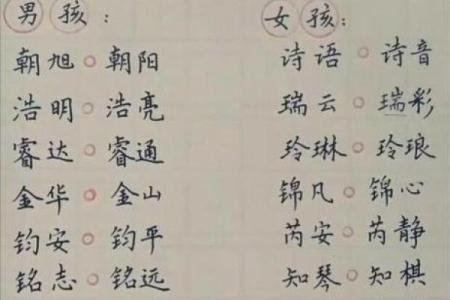 男孩：
朝旭。朝阳
浩明。浩亮
睿达。睿通
金华。金山
钧安。钧平
铭志。铭远
女孩：
诗语。诗音
瑞云。瑞彩
玲琳。玲琅
锦凡。锦心
芮安。芮静
知琴。知棋